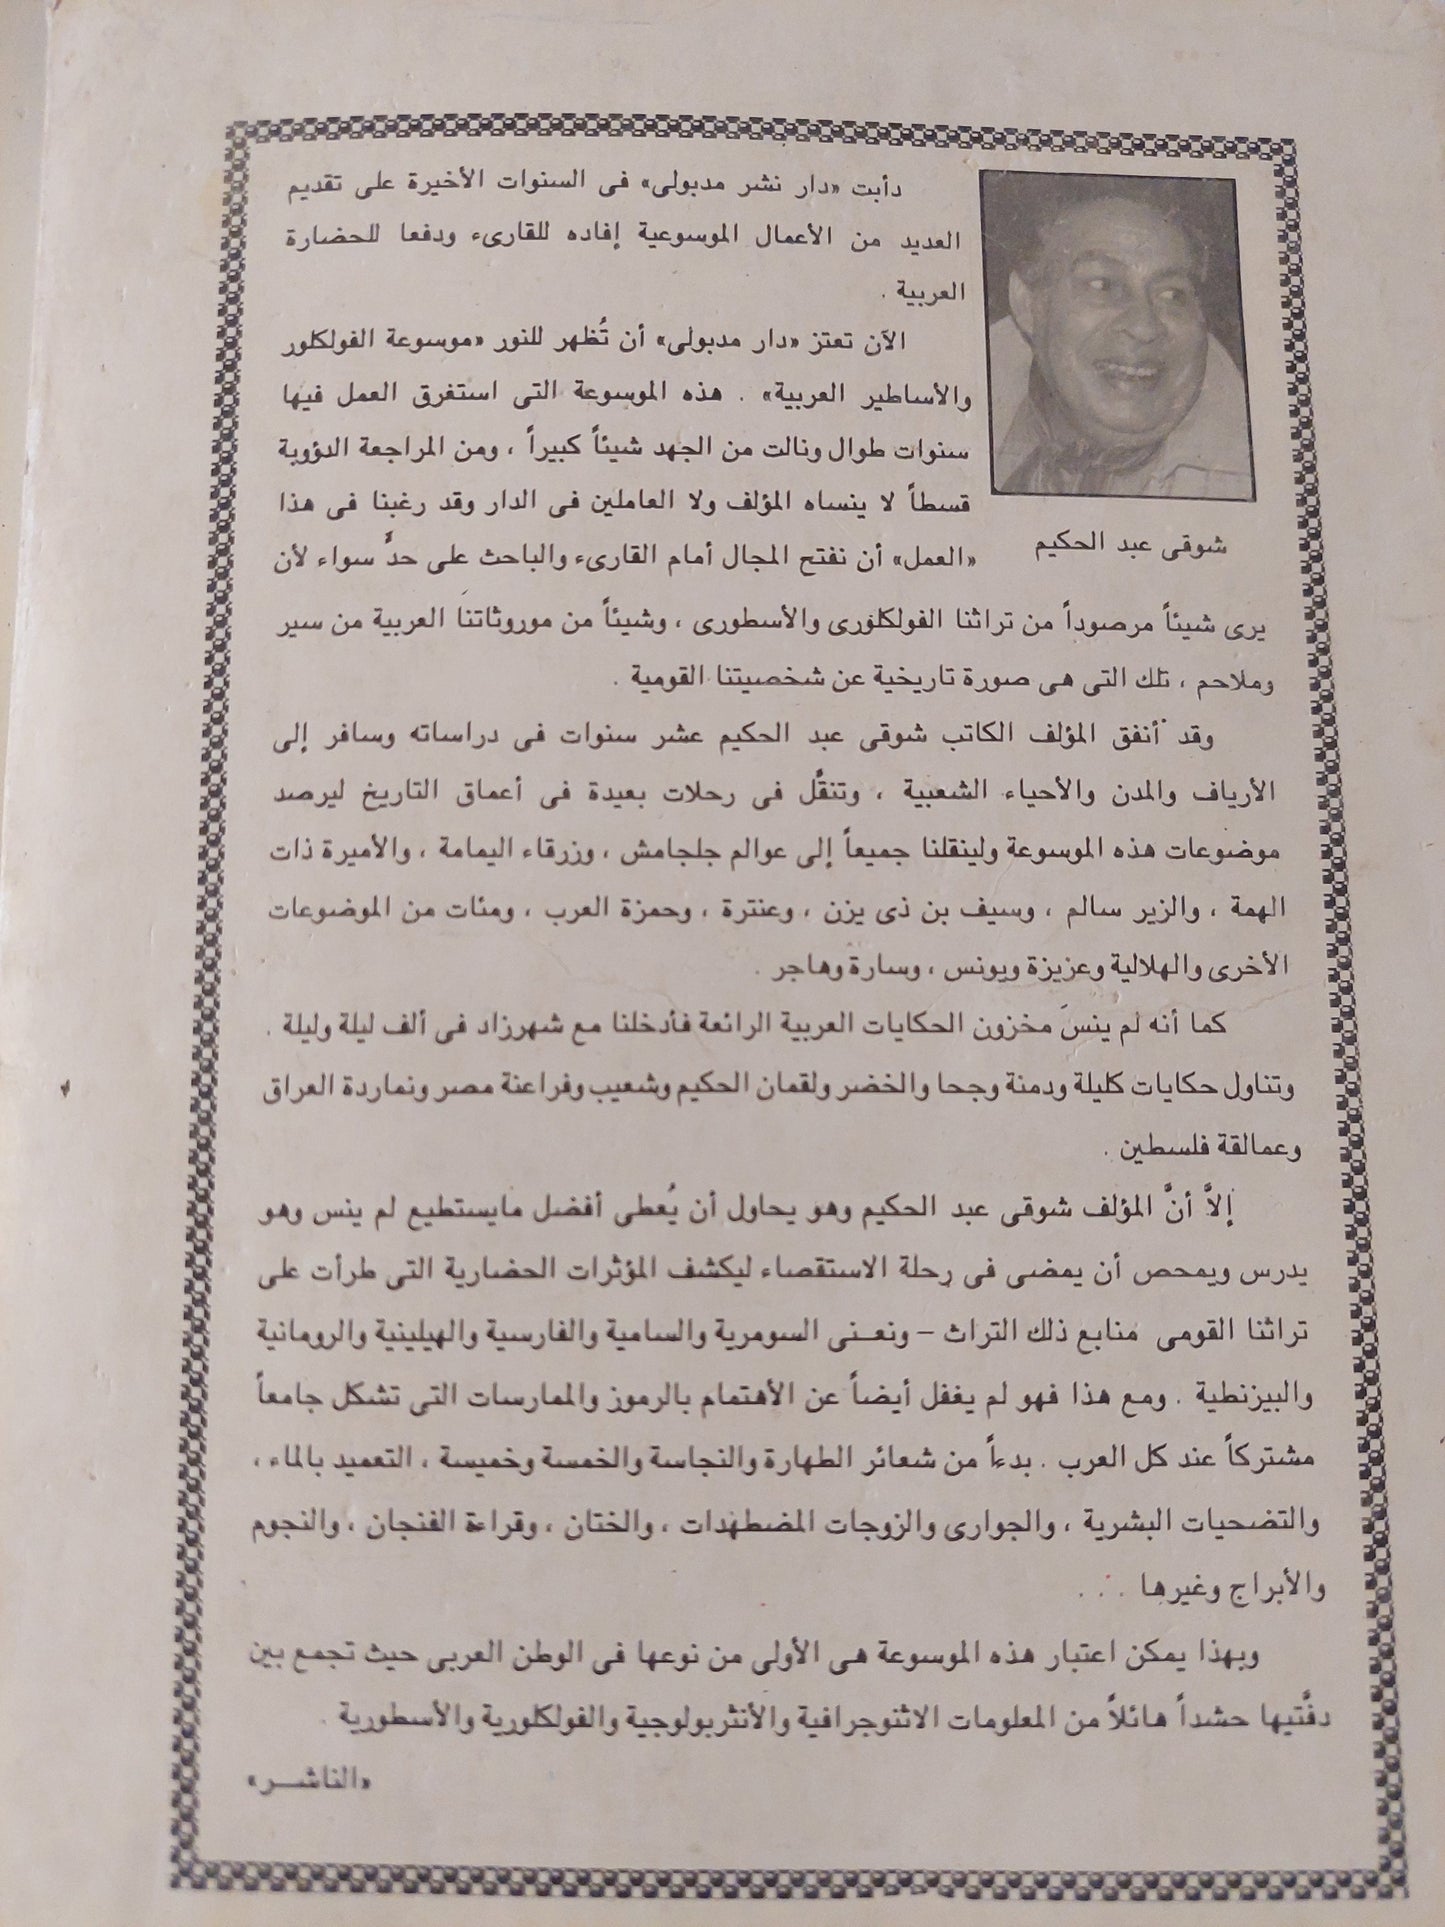 دأبت «دار نشر مدبولى» فى السنوات الأخيرة على تقديم
العديد من الأعمال الموسوعية إفاده للقارىء ودفعا للحضارة
العربية .
الآن تعتز «دار مدبولى» أن تُظهر للنور «موسوعة الفولكلور
والأساطير العربية» . هذه الموسوعة التى استغرق العمل فيها
سنوات طوال ونالت من الجهد شيئاً كبيراً ، ومن المراجعة الدؤوبة
قسطاً لا ينساه المؤلف ولا العاملين فى الدار وقد رغبنا فى هذا
«العمل» أن نفتح المجال أمام القارىء والباحث على حدٍّ سواء لأن
شوقى عبد الحكيم
يرى شيئاً مرصوداً من تراثنا الفولكلورى والأسطورى ، وشيئاً من موروثاتنا العربية من سير
وملاحم ، تلك التى هى صورة تاريخية عن شخصيتنا القومية .
وقد أنفق المؤلف الكاتب شوقى عبد الحكيم عشر سنوات فى دراساته وسافر إلى
الأرياف والمدن والأحياء الشعبية ، وتنقَّل فى رحلات بعيدة فى أعماق التاريخ ليرصد
موضوعات هذه الموسوعة ولينقلنا جميعاً إلى عوالم جلجامش ، وزرقاء اليمامة ، والأميرة ذات
الهمة ، والزير سالم ، وسيف بن ذى يزن ، وعنترة ، وحمزة العرب ، ومئات من الموضوعات
الأخرى والهلالية وعزيزة ويونس ، وسارة وهاجر .
كما أنه لم ينسَ مخزون الحكايات العربية الرائعة فأدخلنا مع شهرزاد فى ألف ليلة وليلة .
وتناول حكايات كليلة ودمنة وجحا والخضر ولقمان الحكيم وشعيب وفراعنة مصر ونماردة العراق
وعمالقة فلسطين .
إلاَّ أنَّ المؤلف شوقى عبد الحكيم وهو يحاول أن يُعطى أفضل مايستطيع لم ينس وهو
يدرس ويمحص أن يمضى فى رحلة الاستقصاء ليكشف المؤثرات الحضارية التى طرأت على
تراثنا القومى منابع ذلك التراث – ونعـنى السومرية والسامية والفارسية والهيلينية والرومانية
والبيزنطية . ومع هذا فهو لم يغفل أيضاً عن الأهتمام بالرموز والممارسات التى تشكل جامعاً
مشتركاً عند كل العرب . بدءاً من شعائر الطهارة والنجاسة والخمسة وخميسة ، التعميد بالماء ،
والتضحيات البشرية ، والجوارى والزوجات المضطهدات ، والختان ، وقراءة الفنجان ، والنجوم
والأبراج وغيرها . . .
وبهذا يمكن اعتبار هذه الموسوعة هى الأولى من نوعها فى الوطن العربى حيث تجمع بين
دفَّتيها حشداً هائلاً من المعلومات الاثنوجرافية والأنثربولوجية والفولكلورية والأسطورية .
«الناشـــر»